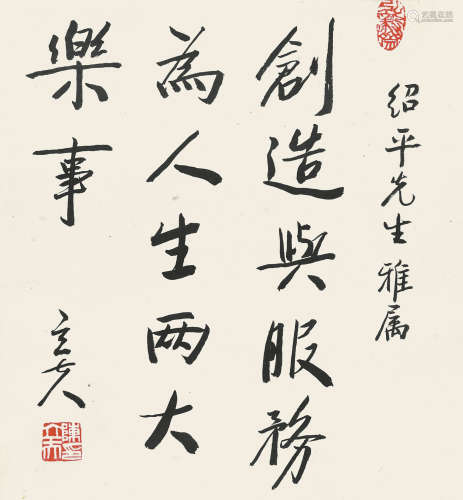 紹平先生雅属
創造與服務
為人生两大
樂事
立夫